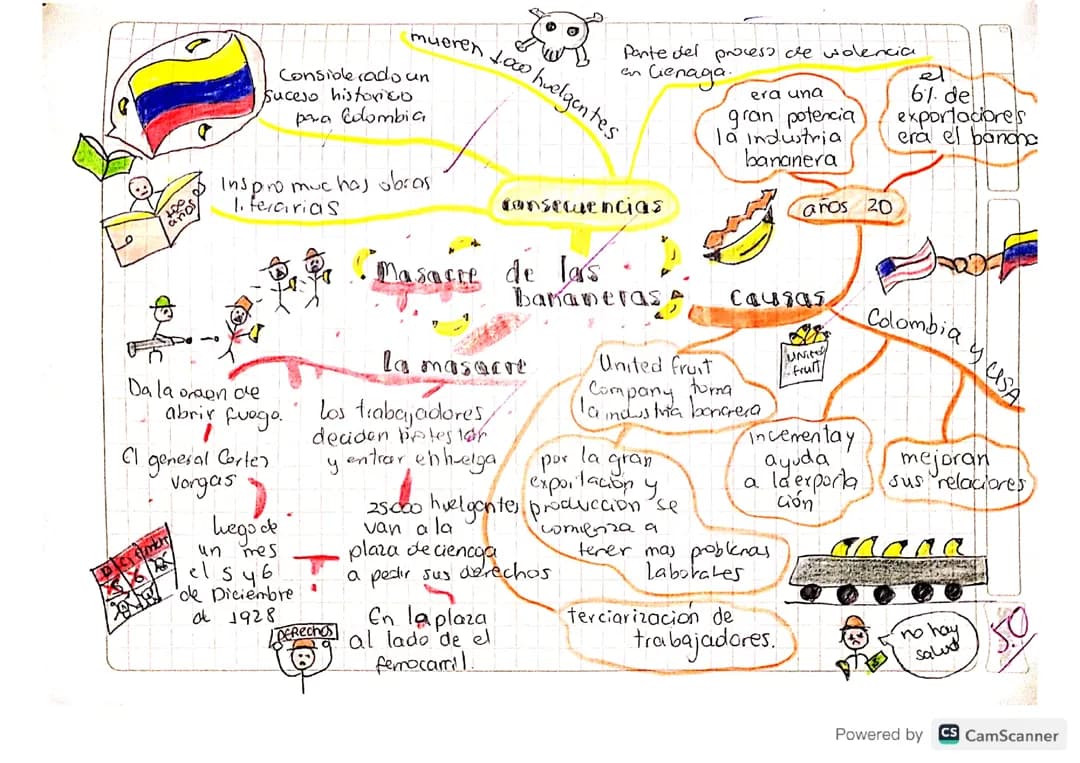 Masacre de las
bananeras
consecuencias
Considerado un
suceso historico
para Colombia
Inspiro muchas obras
literarias
100 años
mueren 1.000 huelgentes
Parte del proceso de violencia
en Cienaga.
causas
años 20
era una
gran potencia
la industria
bananera
el
6% de
exportadores
era el banano
Colombia y USA
Incementa y
ayuda
a la exporta
ción
mejoran
sus relaciones
United fruit
Company toma
la industria bananera
United
fruit
por la gran
exportación y
producción se
comienza a
tener mas problemas
laborales
terciarización de
trabajadores.
no hay
salud
5.0
La masacre
Los trabajadores
deciden protestar
y entrar en huelga
25000 huelgentes
van a la
plaza de cienaga
a pedir sus derechos
En la plaza
al lado de el
ferrocarril.
DERECHOS
luego de
un mes
el 5 y 6
de Diciembre
de 1928
Diciembre
El general Cortes
Vargas
Da la orden de
abrir fuego.
Powered by CS CamScanner